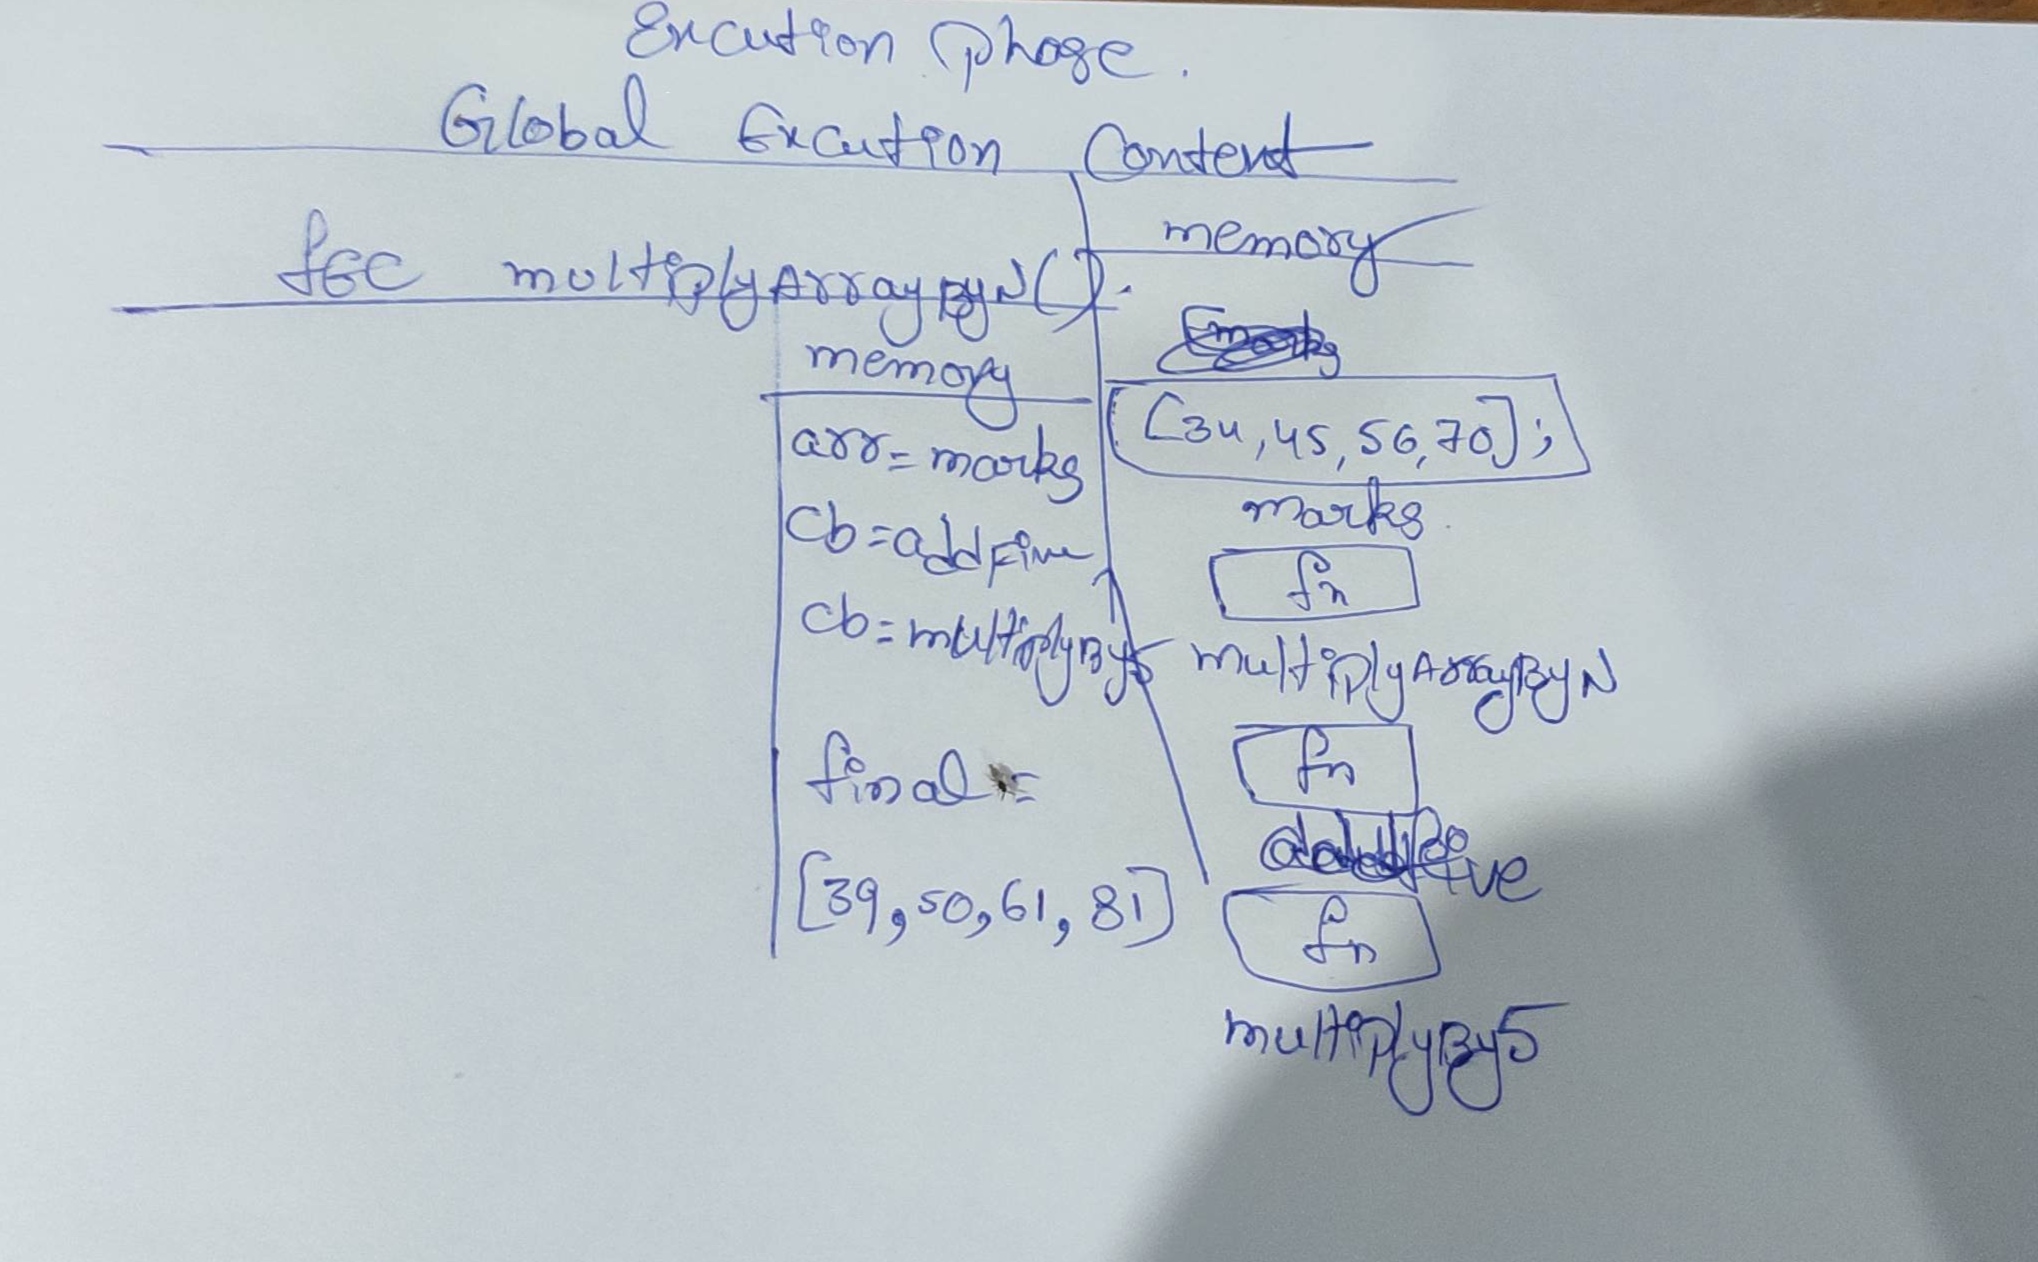 Excution phase.
Global Excution Content
fEC multiplyArrayByN().
memory
arr = marks
Cb = addFive
Cb = multiplyBy5
final =
[39, 50, 61, 81]
memory
[34, 45, 56, 70];
marks
fn
multiplyArrayByN
fn
fn
multiplyBy5